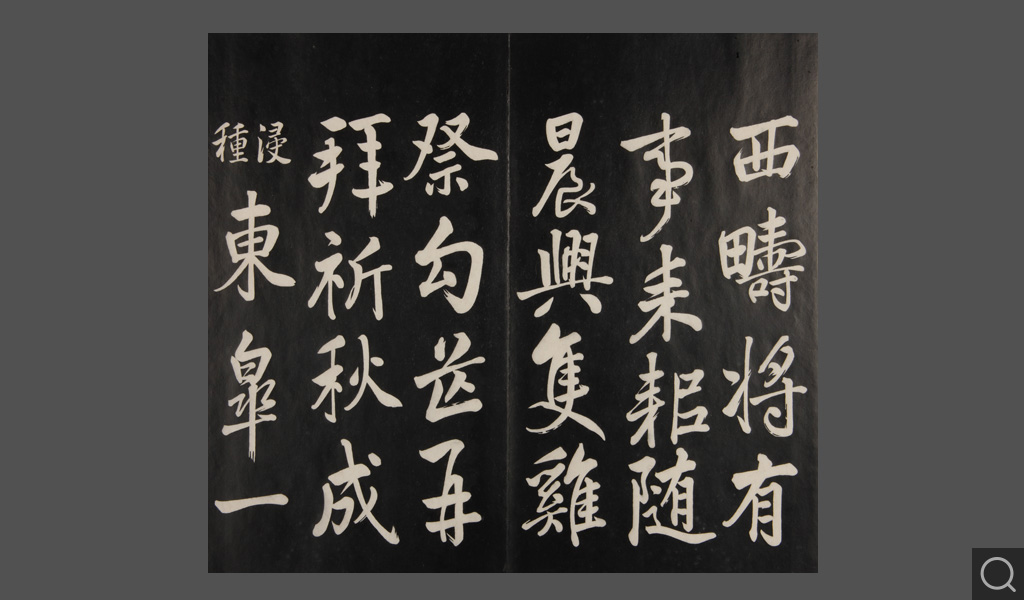 西疇將有
事耒耜随
晨興隻雞
祭勾芒再
拜祈秋成
浸種
東皐一